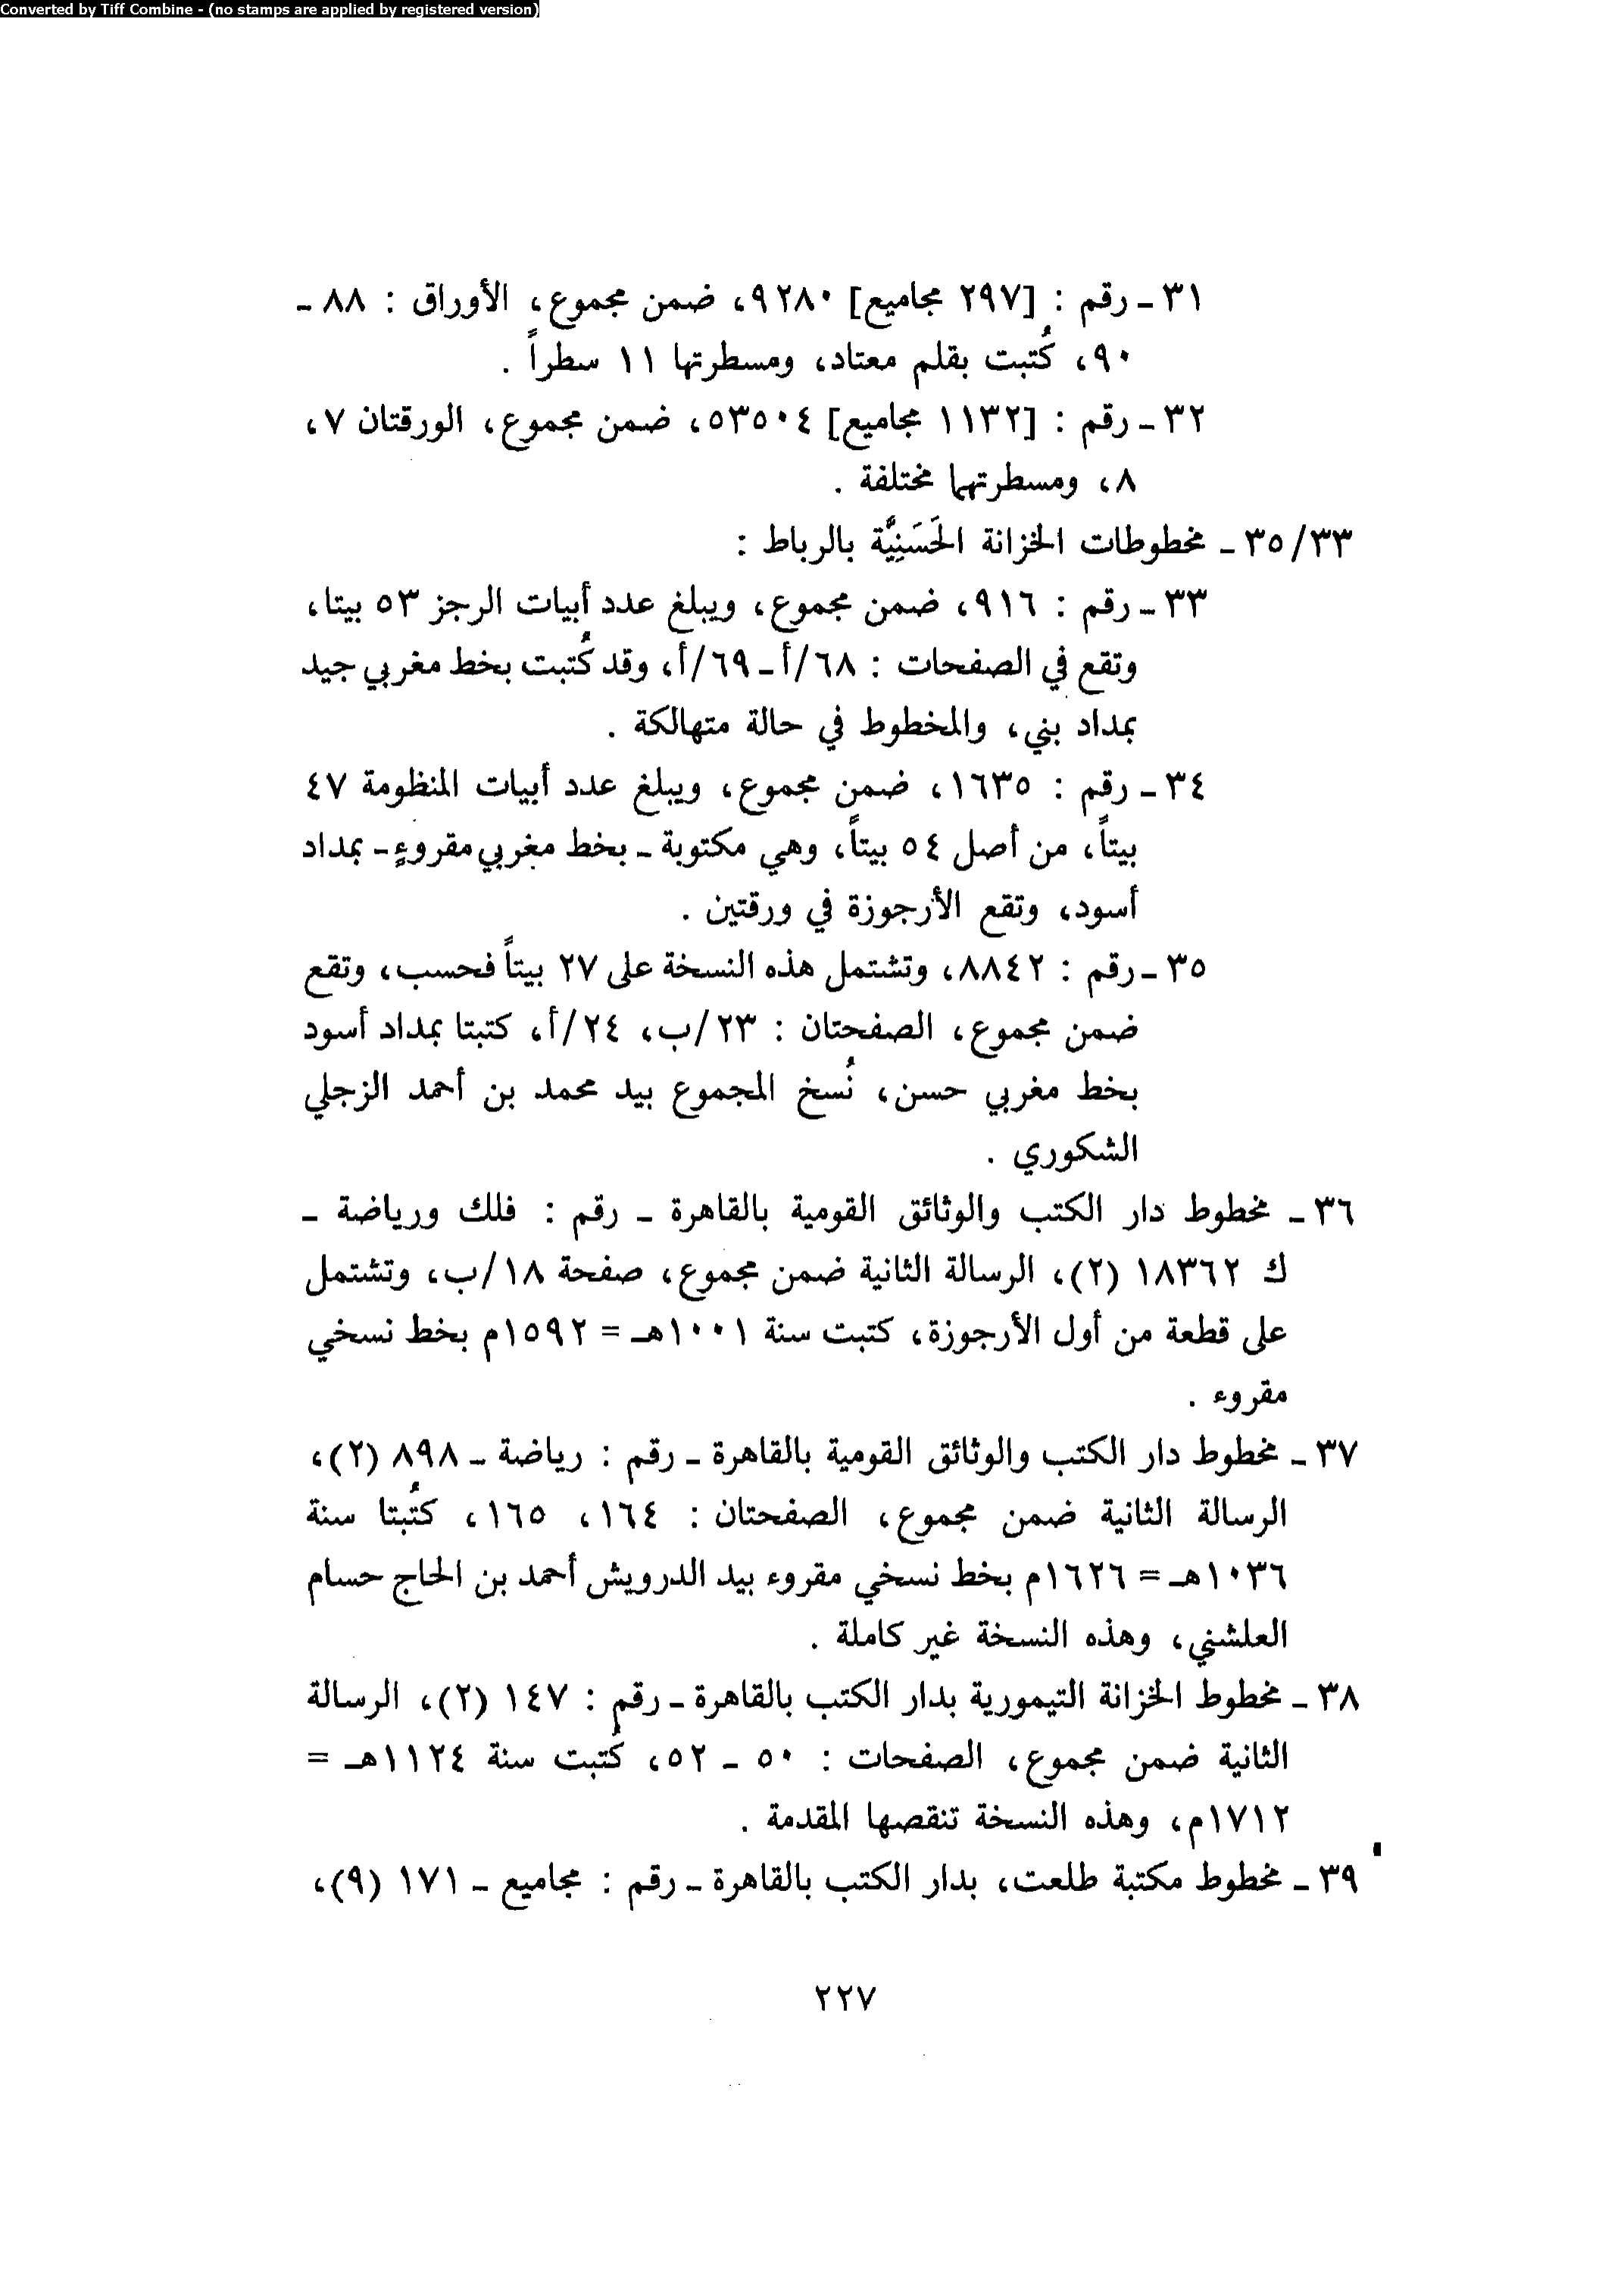 Converted by Tiff Combine - (no stamps are applied by registered version)
٣١ - رقم : [٢٩٧ مجاميع] ٩٢٨٠، ضمن مجموع، الأوراق : ٨٨ -
٩٠، كُتبت بقلم معتاد، ومسطرتها ١١ سطراً .
٣٢ - رقم : [١١٣٢ مجاميع] ٥٣٥٠٤، ضمن مجموع، الورقتان ٧،
٨، ومسطرتهما مختلفة .
٣٥/٣٣ - مخطوطات الخزانة الحَسَنِيَّة بالرباط :
٣٣ - رقم : ٩١٦، ضمن مجموع، ويبلغ عدد أبيات الرجز ٥٣ بيتا،
وتقع في الصفحات : ٦٨/أ - ٦٩/أ، وقد كُتبت بخط مغربي جيد
بمداد بني، والمخطوط في حالة متهالكة .
٣٤ - رقم : ١٦٣٥، ضمن مجموع، ويبلغ عدد أبيات المنظومة ٤٧
بيتاً، من أصل ٥٤ بيتاً، وهي مكتوبة - بخط مغربي مقروءٍ - بمداد
أسود، وتقع الأرجوزة في ورقتين .
٣٥ - رقم : ٨٨٤٢، وتشتمل هذه النسخة على ٢٧ بيتاً فحسب، وتقع
ضمن مجموع، الصفحتان : ٢٣/ب، ٢٤/أ، كتبتا بمداد أسود
بخط مغربي حسن، نُسخ المجموع بيد محمد بن أحمد الزجلي
الشكوري .
٣٦ - مخطوط دار الكتب والوثائق القومية بالقاهرة - رقم : فلك ورياضة -
ك ١٨٣٦٢ (٢)، الرسالة الثانية ضمن مجموع، صفحة ١٨/ب، وتشتمل
على قطعة من أول الأرجوزة، كتبت سنة ١٠٠١هـ = ١٥٩٢م بخط نسخي
مقروء .
٣٧ - مخطوط دار الكتب والوثائق القومية بالقاهرة - رقم : رياضة - ٨٩٨ (٢)،
الرسالة الثانية ضمن مجموع، الصفحتان : ١٦٤، ١٦٥، كتُبتا سنة
١٠٣٦هـ = ١٦٢٦م بخط نسخي مقروء بيد الدرويش أحمد بن الحاج حسام
العلشني، وهذه النسخة غير كاملة .
٣٨ - مخطوط الخزانة التيمورية بدار الكتب بالقاهرة - رقم : ١٤٧ (٢)، الرسالة
الثانية ضمن مجموع، الصفحات : ٥٠ - ٥٢، كُتبت سنة ١١٢٤هـ =
١٧١٢م، وهذه النسخة تنقصها المقدمة .
٣٩ - مخطوط مكتبة طلعت، بدار الكتب بالقاهرة - رقم : مجاميع - ١٧١ (٩)،
٢٢٧